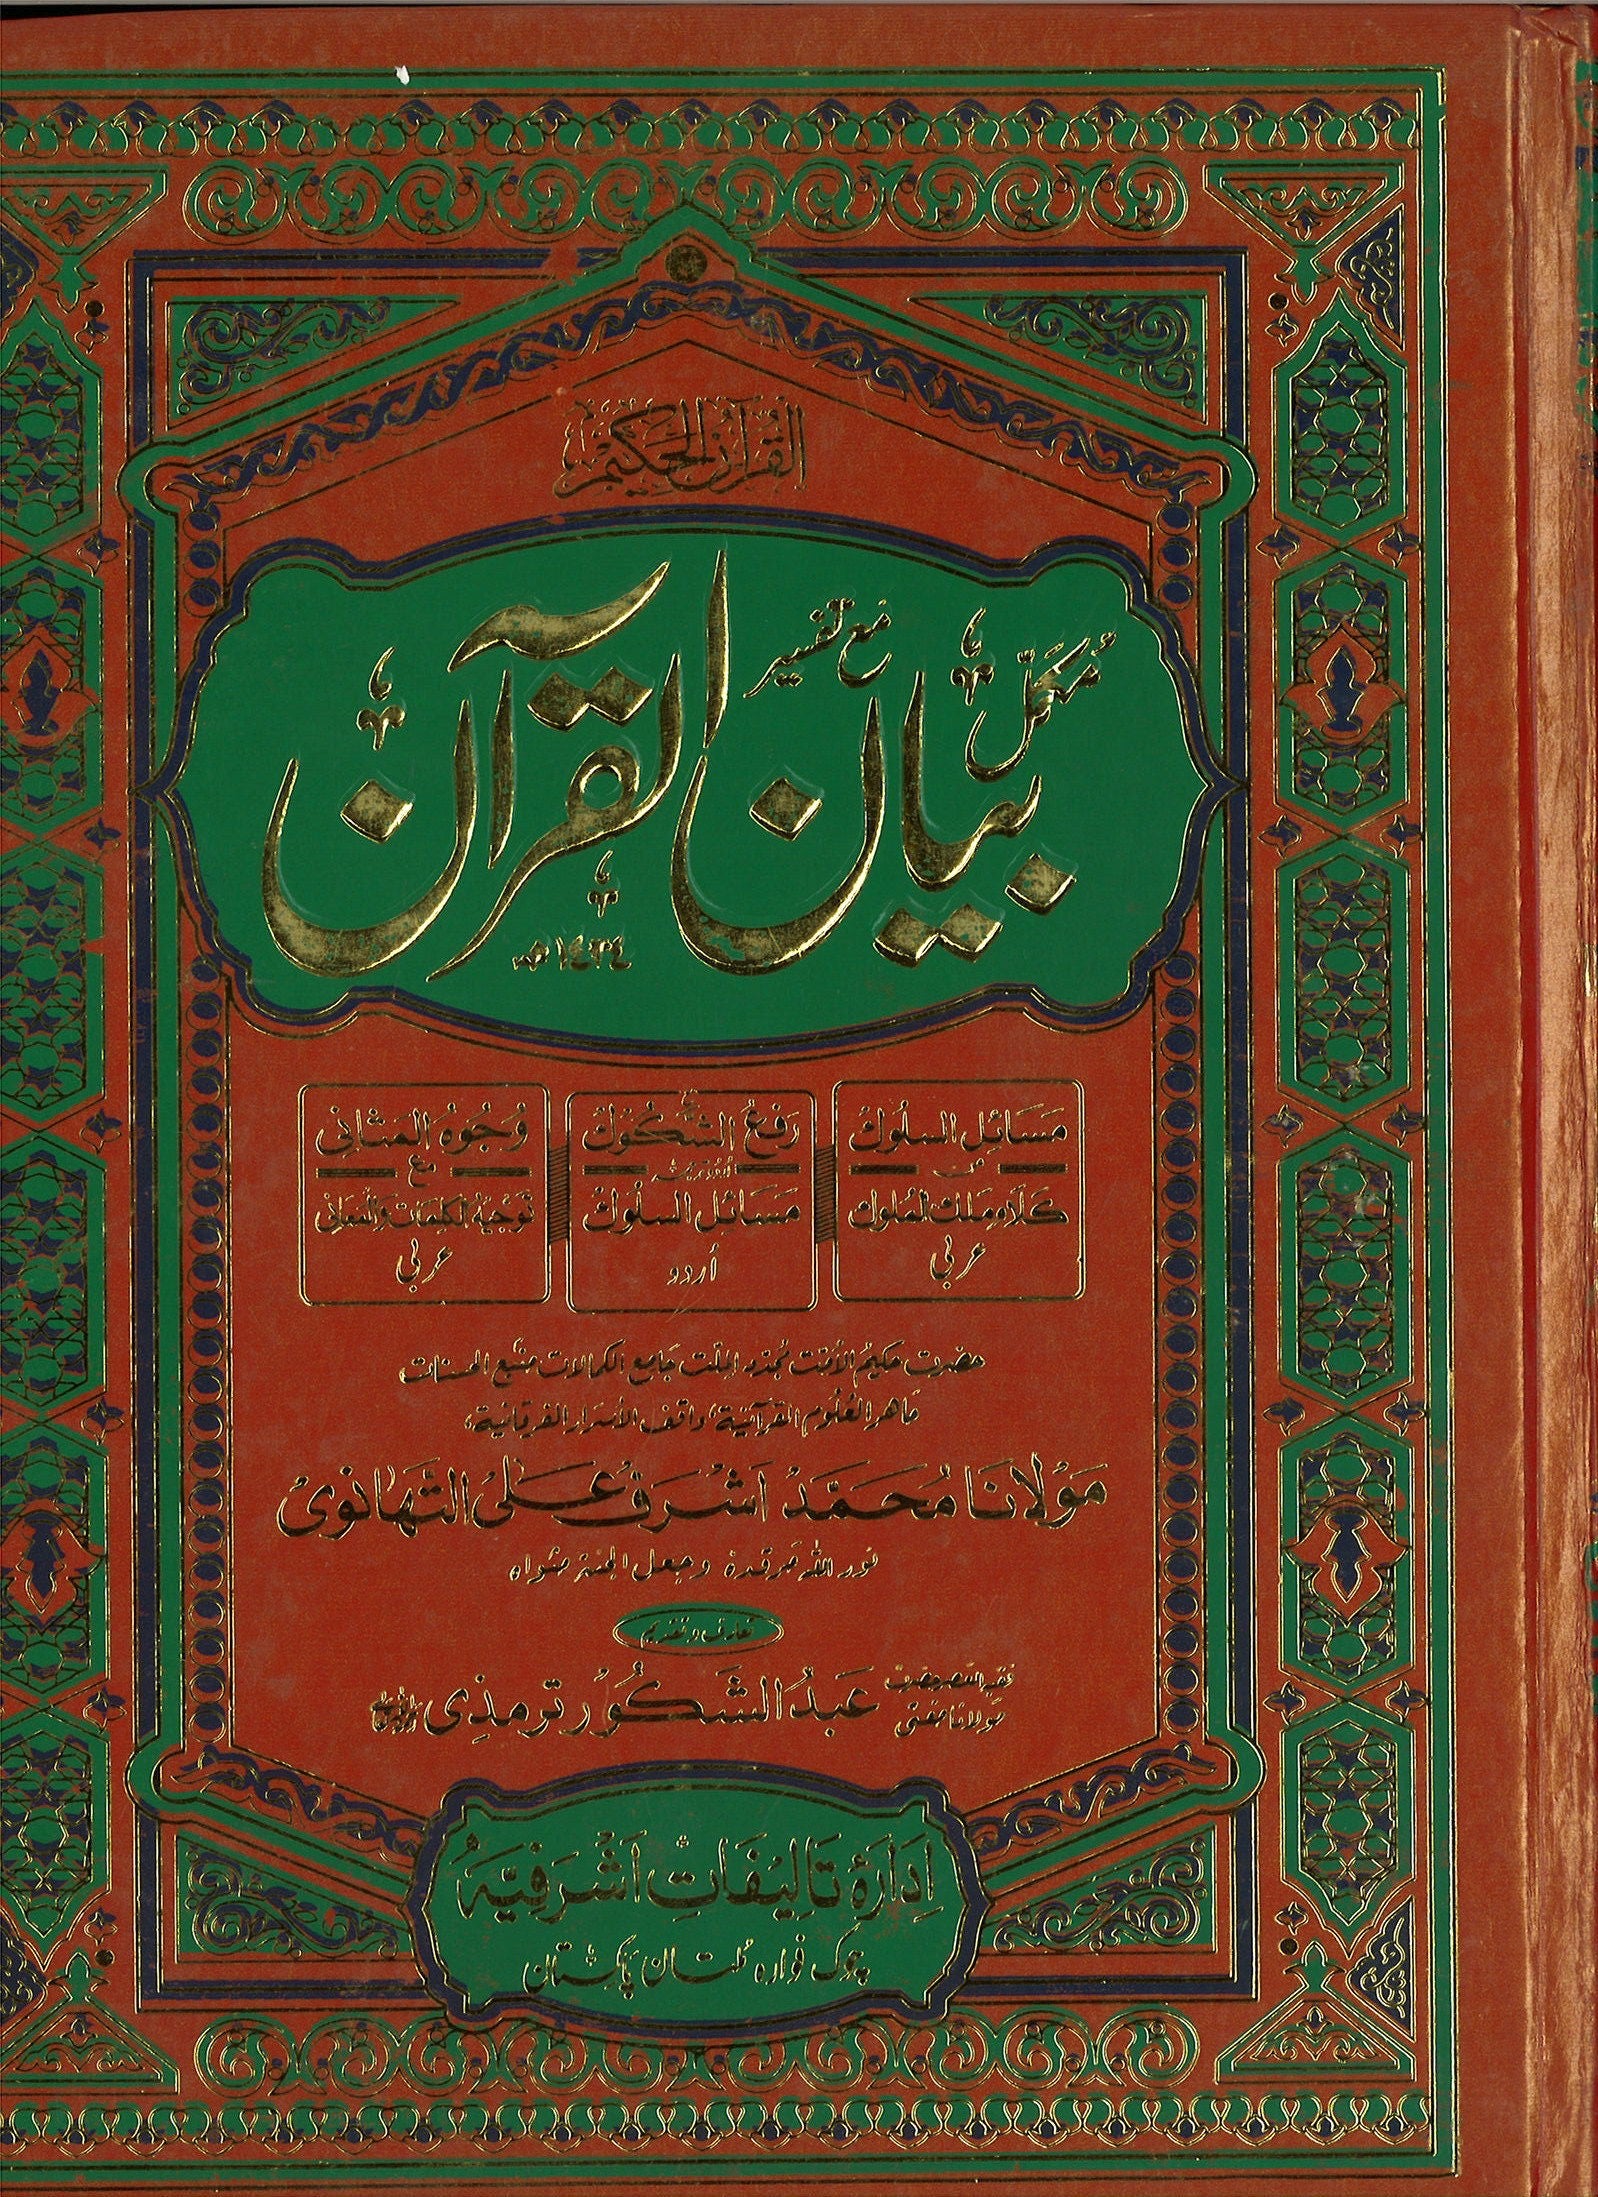 القرآن الحکیم
مکمل
مع تفسیر
بیان القرآن
مسائل السلوک
من
کلام ملک الملوک
عربی
رفع الشکوک
اُردو ترجمہ
مسائل السلوک
اُردو
وجوہ المثانی
مع
توجیہ الکلمات والمعانی
عربی
حضرت حکیم الأمت مجدد الملت جامع الکمالات منبع الحسنات
ماھر العلوم القرآنیة، واقف الأسرار الفرقانیة،
مولانا محمد اشرف علی التھانوی
نور اللہ مرقدہ وجعل الجنة مثواہ
تعارف و تقدیم
فقیہ العصر حضرت مولانا مفتی عبد الشکور ترمذی
ادارہ تالیفات اشرفیہ
چوک فوارہ ملتان پاکستان